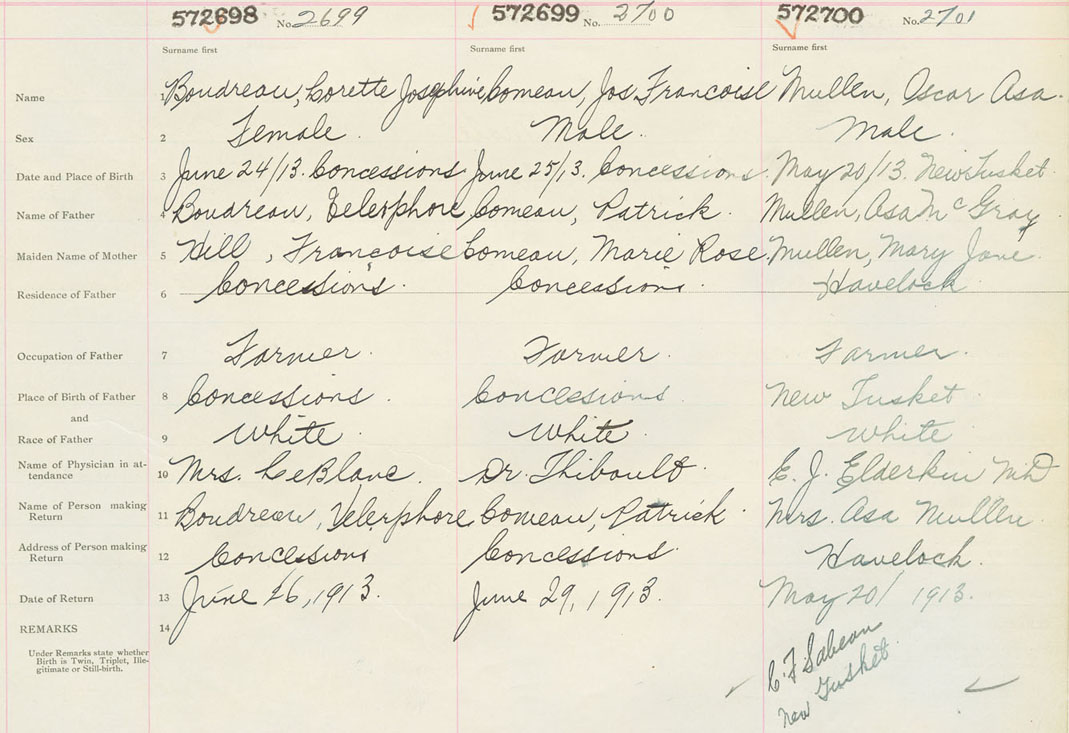 572698 No. 2699 572699 No. 2700 572700 No. 2701
Surname first Surname first Surname first
Name 1 Boudreau, Corette Josephine Comeau, Jos. Francoise Mullen, Oscar Asa.
Sex 2 Female. Male. Male.
Date and Place of Birth 3 June 24/13. Concessions June 25/13. Concessions. May 20/13. New Tusket.
Name of Father 4 Boudreau, Telesphore Comeau, Patrick. Mullen, Asa McGray
Maiden Name of Mother 5 Hill, Francoise Comeau, Marie Rose. Mullen, Mary Jane.
Residence of Father 6 Concessions. Concessions. Havelock.
Occupation of Father 7 Farmer. Farmer. Farmer.
Place of Birth of Father 8 Concessions. Concessions New Tusket
and
Race of Father 9 White. White. White
Name of Physician in at-
tendance 10 Mrs. LeBlanc. Dr. Thibault. E. J. Elderkin MD
Name of Person making
Return 11 Boudreau, Telesphore Comeau, Patrick. Mrs. Asa Mullen
Address of Person making
Return 12 Concessions Concessions. Havelock.
Date of Return 13 June 26, 1913. June 29, 1913. May 20/ 1913.
REMARKS 14
Under Remarks state whether
Birth is Twin, Triplet, Ille-
gitimate or Still-birth.
C. F Sabean
New Tusket.